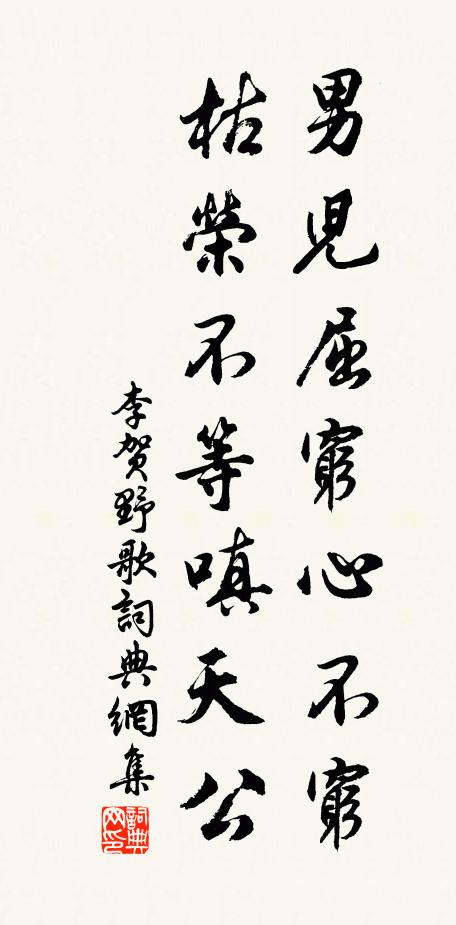 男児屈窮心不窮
枯榮不等嗔天公
李贺野歌詞典網集
詞典網印